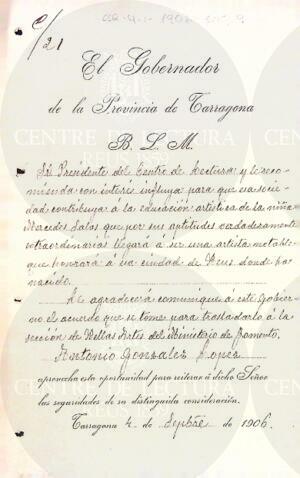 C/21
El Gobernador
de la Provincia de Tarragona
B. L. M.
Sr. Presidente del Centro de Lectura y le reco-
mienda con interés influya para que esa socie-
dad contribuya á la educación artística de la niña
Mercedes Salas que por sus aptitudes verdaderamente
extraordinarias llegará á ser una artista notable
que honrará á esa ciudad de Reus donde ha
nacido.
Le agradecerá comunique á este Gobier-
no el acuerdo que se tome para trasladarlo á la
sección de Bellas Artes del Ministerio de Fomento.
Antonio Gonzalez Lopez
aprovecha esta oportunidad para reiterar á dicho Señor
las seguridades de su distinguida consideración.
Tarragona 4 de Sepbre de 1906.
CENTRE DE LECTURA
REUS 1859